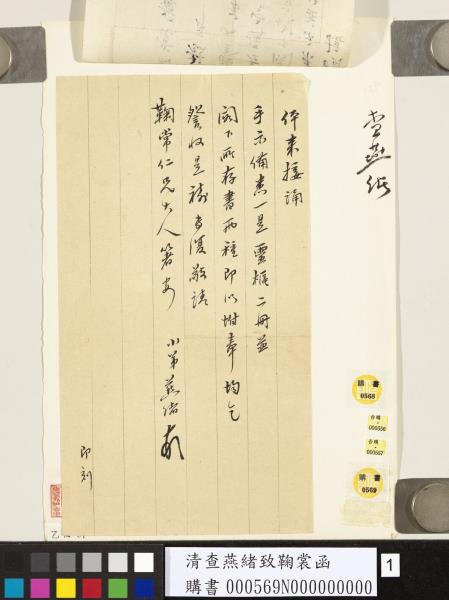 查燕緒
伻来接誦
手示備悉一是靈樞二冊並
閣下所存書兩種即以坿奉均乞
詧收是禱專復敬請
鞠常仁兄大人箸安
小弟燕緒頓
即刻
購書
0568
台購
000556
台購
000557
購書
0569
清查燕緒致鞠裳函
購書 000569N000000000
1